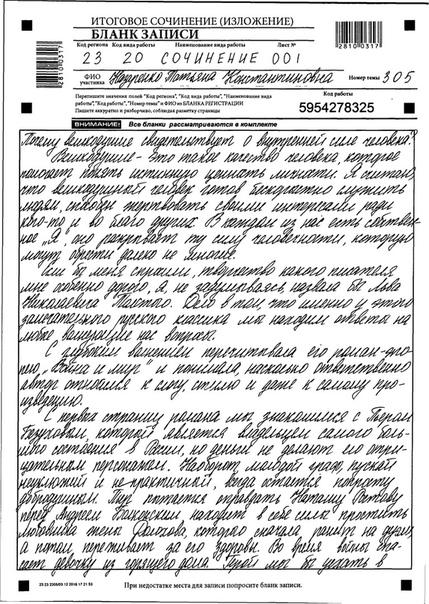 ИТОГОВОЕ СОЧИНЕНИЕ (ИЗЛОЖЕНИЕ)
БЛАНК ЗАПИСИ
Код региона Код вида работы Наименование вида работы Лист №
23 20 СОЧИНЕНИЕ 001
ФИО участника Назаренко Татьяна Константиновна Номер темы 305
Перепишите значения полей "Код региона", "Код вида работы", "Наименование вида
работы", "Код работы", "Номер темы" и ФИО из БЛАНКА РЕГИСТРАЦИИ
Пишите аккуратно и разборчиво, соблюдая разметку страницы
5954278325
ВНИМАНИЕ! Все бланки рассматриваются в комплекте
Почему великодушие свидетельствует о внутренней силе человека?
Великодушие - это такое качество человека, которое
помогает понять истинную ценность личности. Я считаю,
что великодушный человек готов бескорыстно служить
людям, способен жертвовать своими интересами ради
кого-то и во благо других. В каждом из нас есть собствен-
ное "Я", что раскрывает ту силу человечности, которую
могут обрести далеко не многие.
Если бы меня спросили, творчество какого писателя
мне особенно дорого, я, не задумываясь, назвала бы Льва
Николаевича Толстого. Дело в том, что именно у этого
замечательного русского классика мы находим ответы на
любые волнующие нас вопросы.
С глубоким волнением перечитывала его роман-эпо-
пею "Война и мир" и понимала, насколько ответственно
автор относился к слогу, стилю и даже к самому про-
изведению.
С первых страниц романа мы знакомимся с Пьером
Безуховым, который является владельцем самого боль-
шого состояния в России, но деньги не делают его отри-
цательным персонажем. Наоборот, молодой граф, пускай
неуклюжий и не практичный, всегда остается попросту
добродушным. Пьер пытается оправдать Наташу Ростову
перед Андреем Болконским, находит в себе силы простить
любовника жены Долохова, которого сначала ранит на дуэли,
а потом переживает за его здоровье. Во время войны спа-
сает девочку из горящего дома. Герой мог бы уехать в
При недостатке места для записи попросите бланк записи.